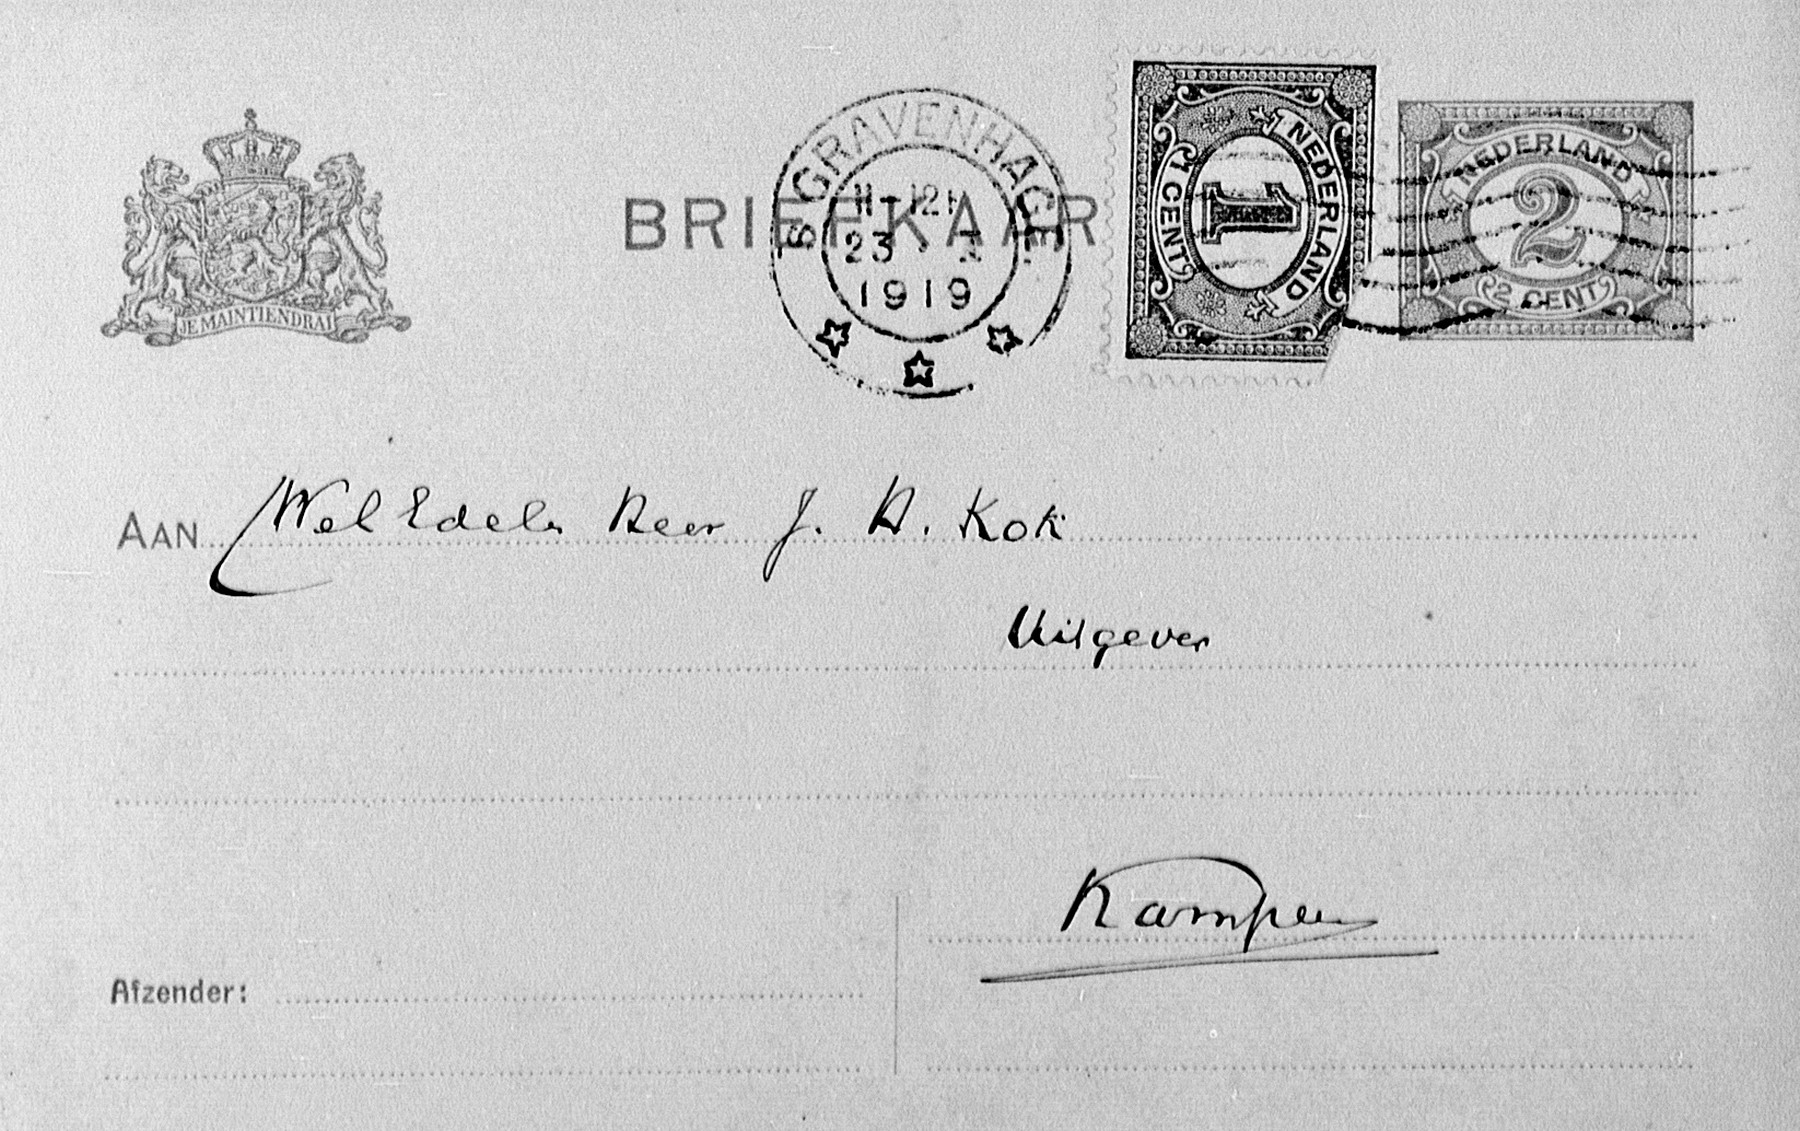 JE MAINTIENDRAI
BRIEFKAAR
'S GRAVENHAGE
11-12
23 . 3
1919
NEDERLAND
1
1 CENT
NEDERLAND
2
2 CENT
AAN WelEdele Heer J. H. Kok
Uitgever
Kampen
Afzender: